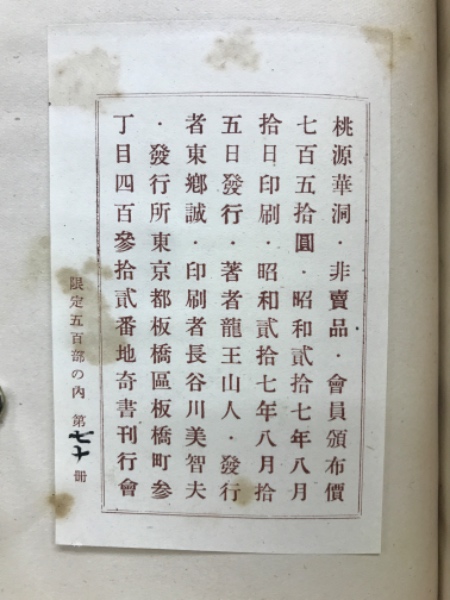 桃源華洞・非賣品・會員頒布價
七百五拾圓・昭和貳拾七年八月
拾日印刷・昭和貳拾七年八月拾
五日發行・著者龍王山人・發行
者東鄕誠・印刷者長谷川美智夫
・發行所東京都板橋區板橋町參
丁目四百參拾貳番地奇書刊行會
限定五百部の內 第七十冊